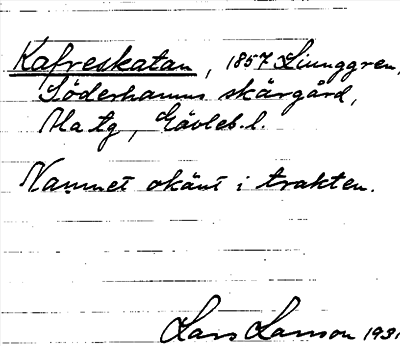 Kafreskatan, 1857 Ljunggren,
Söderhamns skärgård,
Ma tg, Gävleb. l.
Namnet okänt i trakten.
Lars Larsson 1931